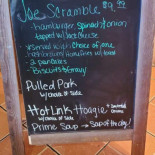 Joe Scramble $9.99
hamburger, spinach & onion
topped w/ jack cheese
served with choice of one
2 pancakes
Biscuits & gravy
Pulled Pork
w/ choice of side
Hot Link Hoagie w/ Sauteed Onions
w/ choice of side
Prime Soup → Soup of the day!